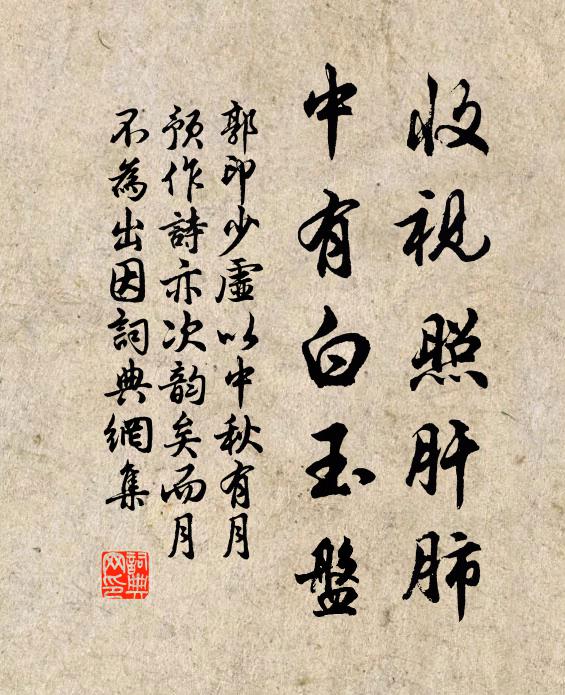 收視照肝肺
中有白玉盤
郭印少虛以中秋有月
預作詩亦次韵矣而月
不為出因詞典網集
詞典
网印